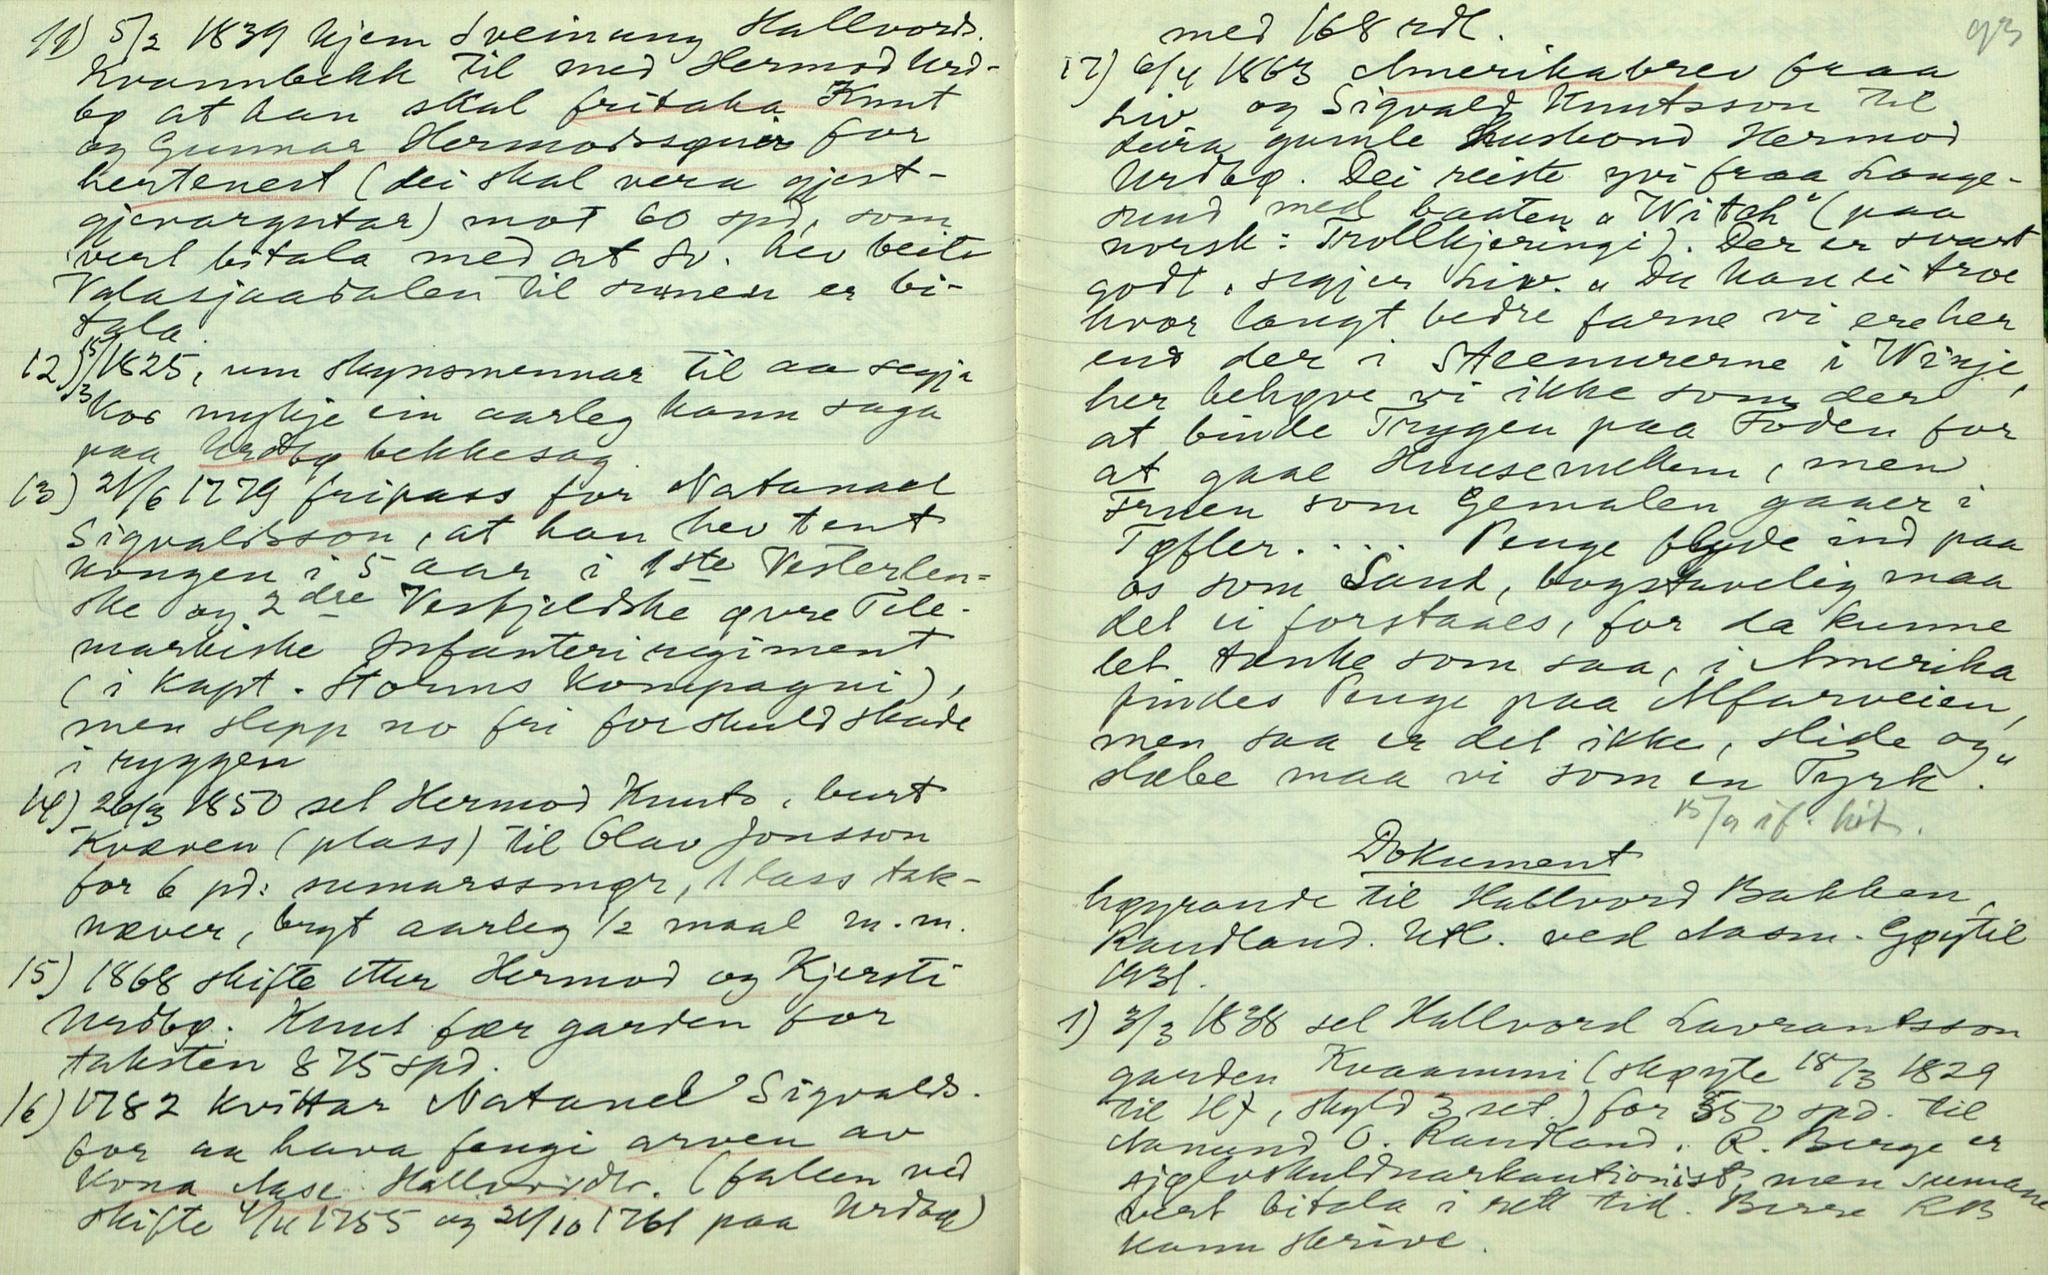 11) 5/2 1839 kjem Sveinung Hallvords.
Kvannbekk til med Hermod Urd-
bø at han skal fritaka Knut
og Gunnar Hermodssøner for
hertenest (dei skal vera gjest-
gjevargutar) mot 60 spd, som
vert bitala med at Sv. hev beite
Valasjaadalen til sumen er bi-
tala.
12) 15/3 1825, um skynsmennar til aa segja
kor mykje ein aarleg kann saga
paa Urdbø bekkesag.
13) 21/6 1779 fripass for Natanael
Sigvaldsson, at han hev tent
kongen i 5 aar i 1ste Vesterlen-
ske og 2dre Vesfjeldske øvre Tele-
markiske Infanteriregiment
(i Kapt. Storms Kompagni),
men slepp no fri for skuld skade
i ryggen
14) 26/3 1850 sel Hermod Knuts. burt
Kvæven (plass) til Olav Jonsson
for 6 pd: sumarssmør, 1 lass tak-
næver, bryt aarleg 1/2 maal m.m.
15) 1868 skifte etter Hermod og Kjersti
Urdbø. Knut fær garden for
taksten 875 spd.
16) 1782 kvittar Natanel Sigvalds.
for aa hava fengi arven av
kona Aase Hallvordsdr. (fallen ved
skifte 4/11 1755 og 21/10 1761 paa Urdbø)
med 168 rdl.
93
17) 6/4 1863 Amerikabrev fraa
Liv og Sigvald Knutsson til
deira gamle husbond Hermod
Urdbø. Dei reiste yvi fraa Lange-
sund med baaten "Witch" (paa
norsk: Trollkjeringi). Der er svært
godt, segjer Liv. "Du kan ei troe
hvor langt bedre farne vi ere her
end der i Steenurerne i Winje,
her behøve vi ikke som der
at binde Trygen paa Foden for
at gaae Huusemellem, men
Fruen som Gemalen gaaer i
Tøfler..... Penge flyde ind paa
os som Sand, bogstavelig maa
det ei forstaaes, for da kunne
let tænke som saa, i Amerika
findes Penge paa Alfarveien,
men saa er det ikke, slide og
slæbe maa vi som en Tyrk."
15/9
Dokument
høyrande til Hallvord Bakken,
Raudland. Utl. ved Aasm. Gøytil
1931.
1) 3/3 1838 sel Hallvord Lavrantsson
garden Kvaammi (skøyte 18/3 1829
til H., skyld 3 set.) for 550 spd. til
Aanund O. Raudland. R. Berge er
sjølvskuldnarkautionist, men sumane
vert bitala i rett tid. Berre RB
kann skrive.